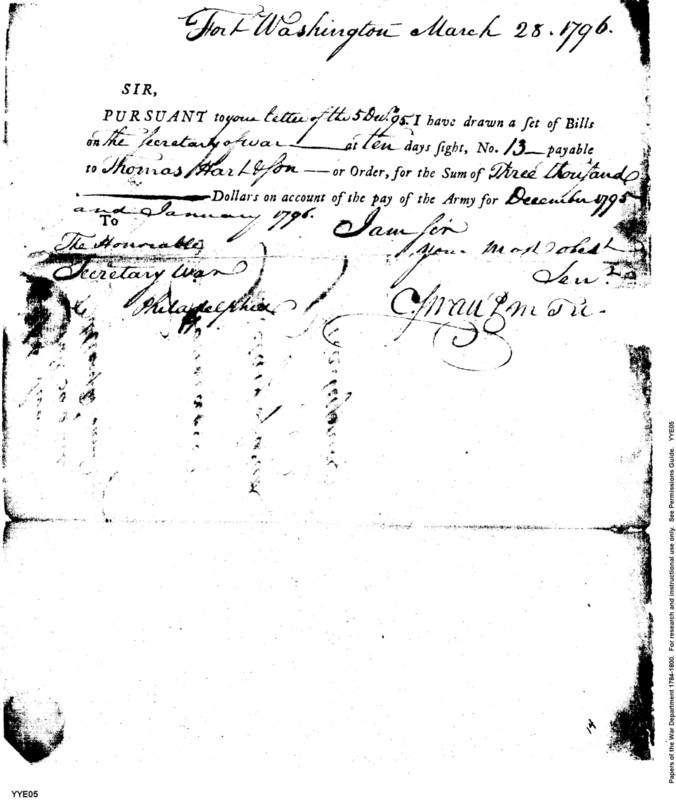 Fort Washington March 28. 1796.
SIR,
PURSUANT to your letter of the 5 Decr. 95. I have drawn a set of Bills
on the Secretary of war at ten days sight, No. 13 payable
to Thomas Hart & Son or Order, for the Sum of Three thousand
Dollars on account of the pay of the Army for December 1795
and January 1796.
To
I am Sir
The Honorable
your most obedt
Secretary War
Servt
Philadelphia
C Swan P M Tr.
14
YYE05
Papers of the War Department 1784-1800. For research and instructional use only. See Permissions Guide. YYE05